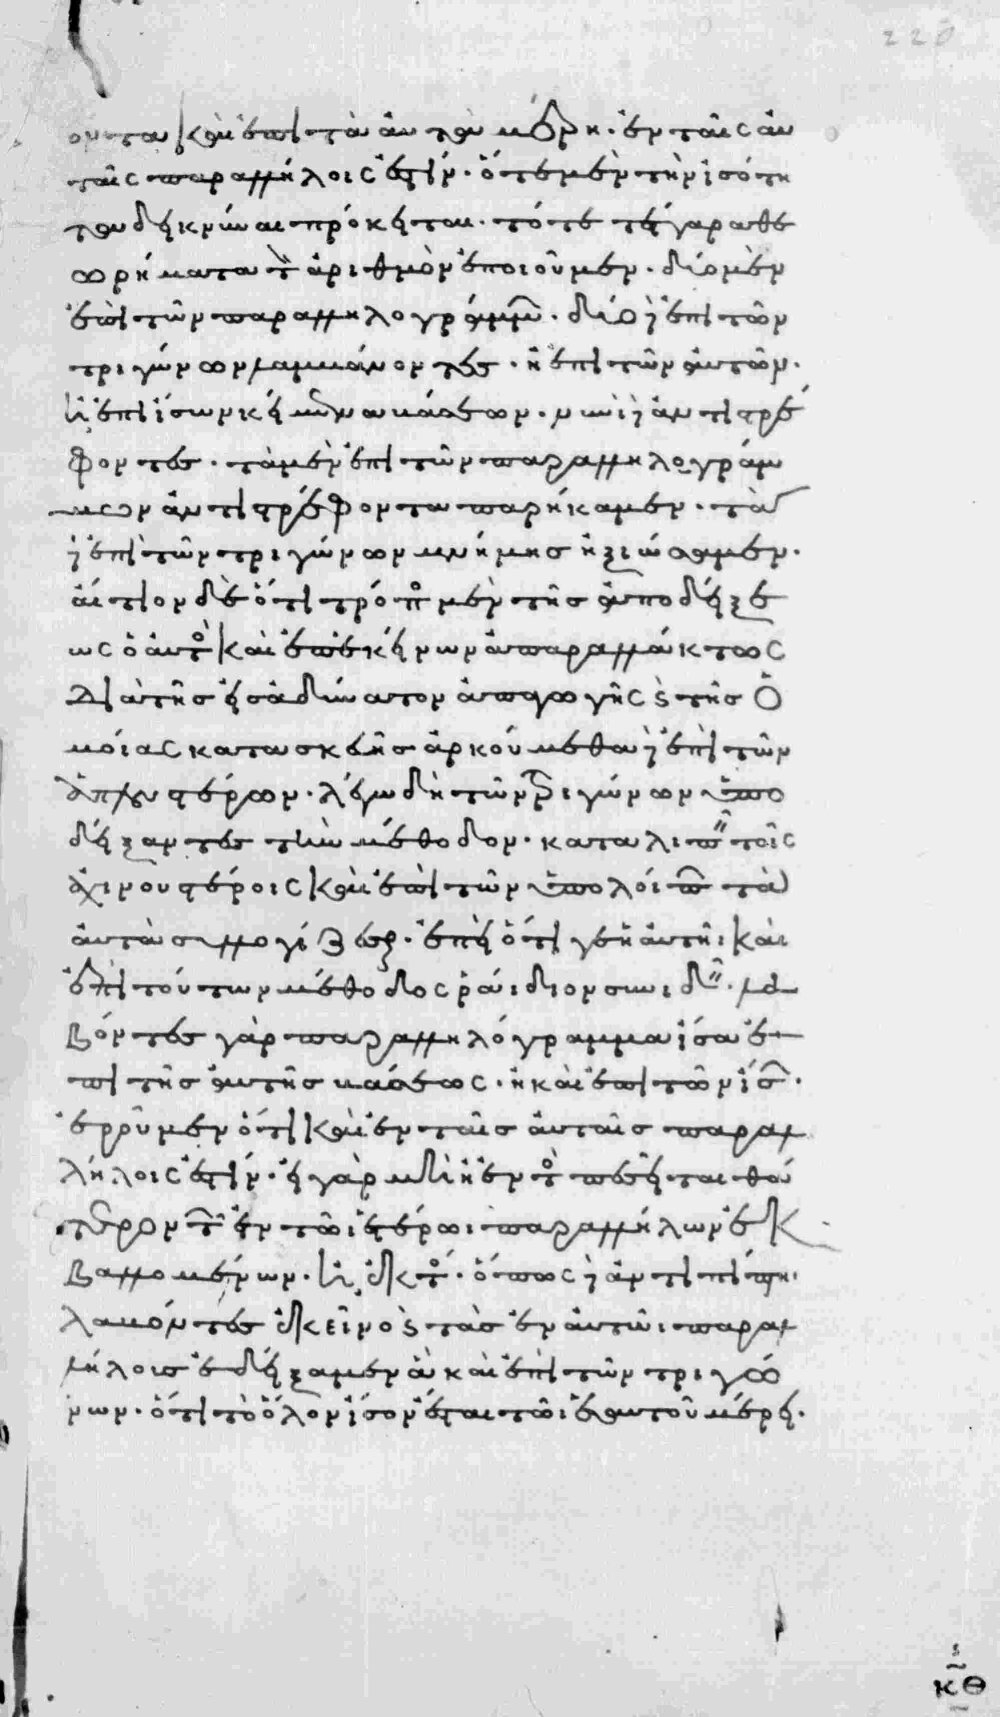 ονται καὶ ἐπὶ τὰ αὐτὰ μέρη. ἐν ταῖς αὐ
ταῖς παραλλήλοις ἐστίν. ὅτε μὲν τὴν ἰσότη
τα δεικνύναι πρόκειται. τότε τέσσαρα θε
ωρήματα τὸν ἀριθμὸν ἐποιοῦμεν. δύο μὲν
ἐπὶ τῶν παραλληλογράμμων. δύο δὲ ἐπὶ τῶν
τριγώνων λαμβάνοντες. ἢ ἐπὶ τῶν αὐτῶν.
ἢ ἐπὶ ἴσων κειμένων βάσεων. νυνὶ δὲ ἀντιστρέ
φοντες. τὰ μὲν ἐπὶ τῶν παραλληλογράμ
μων ἀντιστρέφοντα παρήκαμεν. τὰ
δὲ ἐπὶ τῶν τριγώνων μνήμης ἠξιώσαμεν.
αἴτιον δὲ ὅτι τρόπος μὲν τῆς ἀποδείξε
ως ὁ αὐτὸς καὶ ἐπ' ἐκείνων ἀπαραλλάκτως
διὰ τῆς εἰς ἀδύνατον ἀπαγωγῆς καὶ τῆς ὁ
μοίας κατασκευῆς ἀρκούμεθα δὲ ἐπὶ τῶν
ἁπλουστέρων. λέγω δὴ τῶν τριγώνων ὑπο
δείξαντες τὴν μέθοδον. καταλιπεῖν τοῖς
ἀγχινουστέροις καὶ ἐπὶ τῶν ὑπολοίπων τὰ
αὐτὰ συλλογίζεσθαι. ἐπεὶ ὅτι γε ἡ αὐτὴ καὶ
ἐπὶ τούτων μέθοδος ῥάιδιον συνιδεῖν. λα
βόντες γὰρ παραλληλόγραμμα ἴσα ἐ
πὶ τῆς αὐτῆς βάσεως. ἢ καὶ ἐπὶ τῶν ἴσων.
ἐροῦμεν ὅτι καὶ ἐν ταῖς αὐταῖς παραλ
λήλοις ἐστίν. εἰ γὰρ μὴ ἢ ἐντὸς πεσεῖται θά
τερον τῶν ἐν τῶι ἑτέρωι παραλλήλων ἐκ
βαλλομένων. ἢ ἐκτός. ὅπως δὲ ἂν πίπτηι
λαβόντες ἐκεῖνο καὶ τὰς ἐν αὐτῶι παραλ
λήλοις ἐδείξαμεν ἂν καὶ ἐπὶ τῶν τριγώ
νων. ὅτι τὸ ὅλον ἴσον ἔσται τῶι ἑαυτοῦ μέρει.
κθ